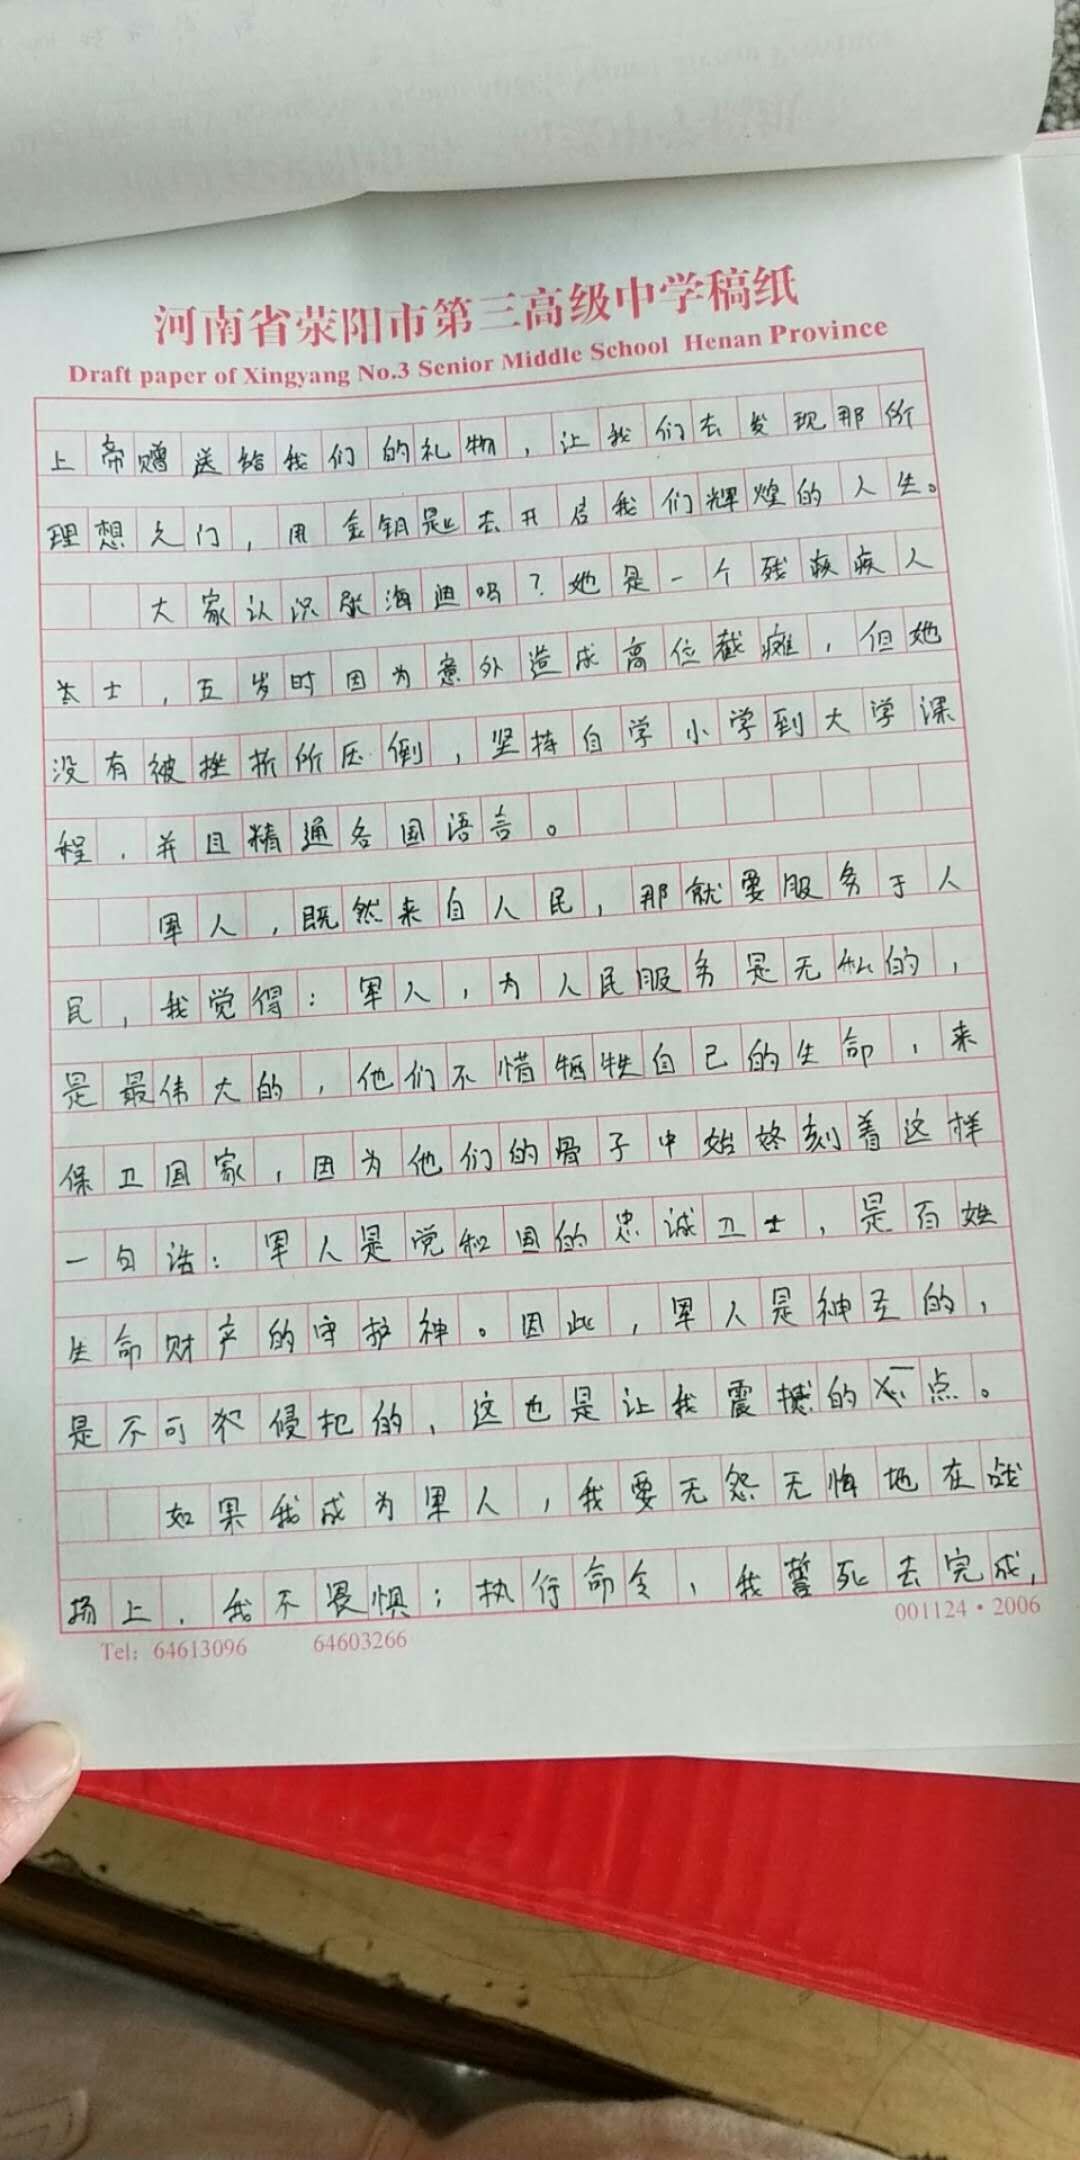 河南省荥阳市第三高级中学稿纸
Draft paper of Xingyang No.3 Senior Middle School Henan Province
上帝赠送给我们的礼物，让我们去发现那价
理想之门，用金钥匙去开启我们辉煌的人生。
大家认识张海迪吗？她是一个残疾人
士，五岁时因为意外造成高位截瘫，但她
没有被挫折所压倒，坚持自学小学到大学课
程，并且精通各国语言。
军人，既然来自人民，那就要服务于人
民，我觉得：军人，为人民服务是无私的，
是最伟大的，他们不惜牺牲自己的生命，来
保卫国家，因为他们的骨子中始终刻着这样
一句话：军人是党和国的忠诚卫士，是百姓
生命财产的守护神。因此，军人是神圣的，
是不可犯侵犯的，这也是让我震撼的一点。
如果我成为军人，我要无怨无悔地在战
场上，我不畏惧；执行命令，我誓死去完成，
Tel: 64613096 64603266
001124·2006